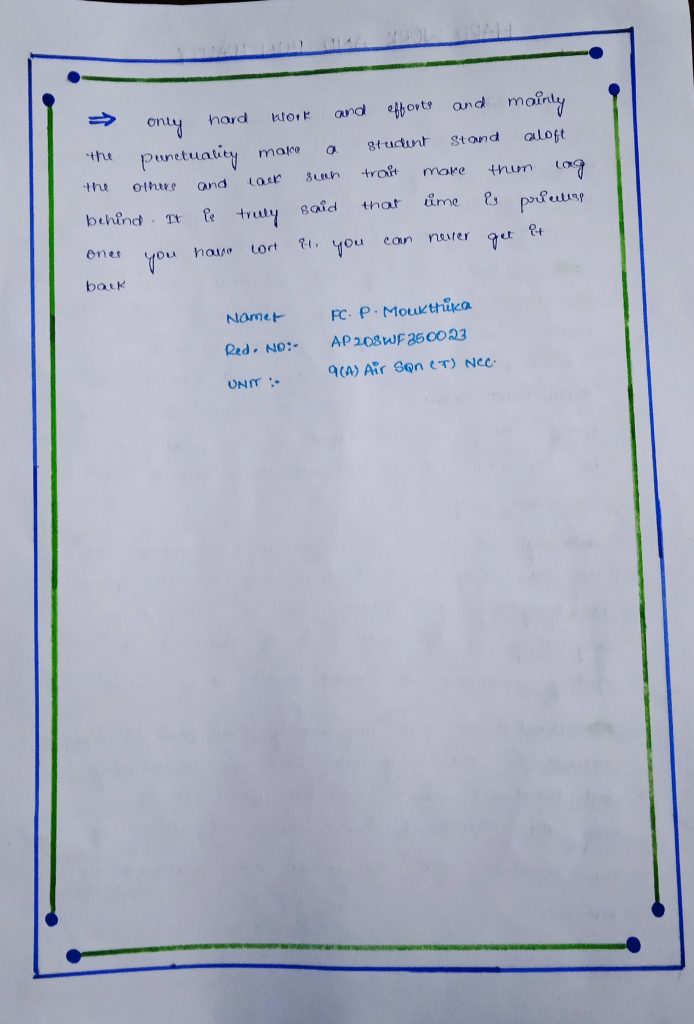 ⇒ only hard work and efforts and mainly
the punctuality make a student stand aloft
the others and lack such trait make them lag
behind. It is truly said that time is priceless
ones you have lort it, you can never get it
back
Name:- FC. P. Moukthika
Red. NO:- AP20SWF350023
UNIT :- 9(A) Air Sqn (T) NCC.